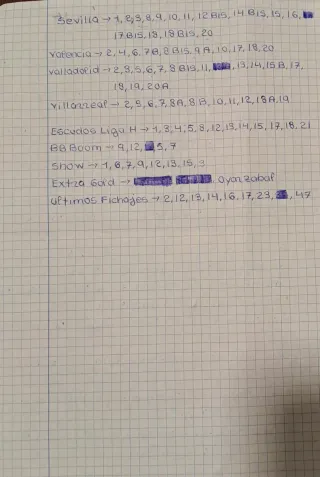 Sevilla → 1, 2, 3, 8, 9, 10, 11, 12 Bis, 14 Bis, 15, 16,
17 Bis, 18, 18 Bis, 20
Valencia → 2, 4, 6, 7B, 8 Bis, 9A, 10, 17, 18, 20
Valladolid → 2, 3, 5, 6, 7, 8 Bis, 11, 13, 14, 15B, 17,
18, 19, 20A
Villarreal → 2, 5, 6, 7, 8A, 8B, 10, 11, 12, 18A, 19
Escudos Liga H → 1, 3, 4, 5, 8, 12, 13, 14, 15, 17, 18, 21
BB Boom → 9, 12, 5, 7
Show → 1, 6, 7, 9, 12, 13, 15, 3
Extra Gold → Oyarzabal
Últimos Fichages → 2, 12, 13, 14, 16, 17, 23, 47